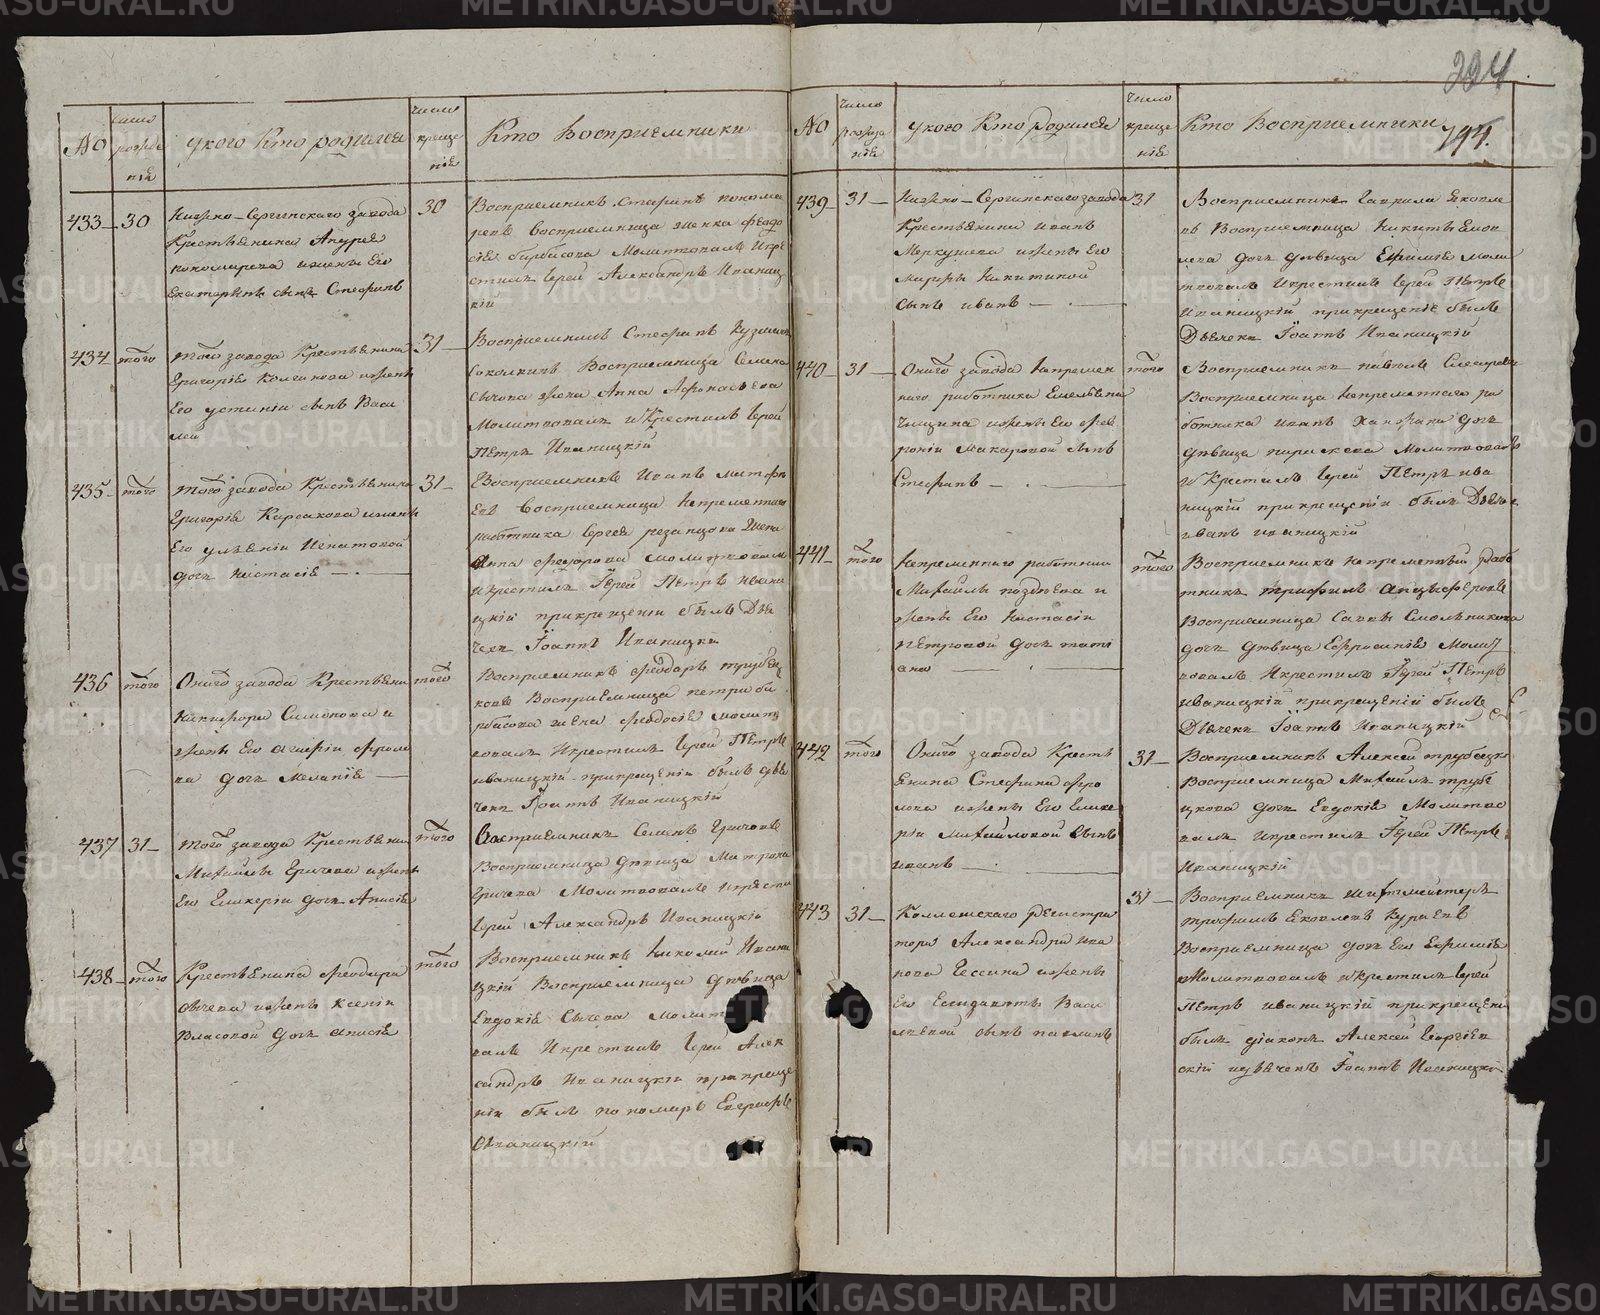 224
194.
№
число рожде нія
у кого кто родился
число креще нія
Кто Восприемники
433
30
Нижно-Сергинскаго завода
Крестьянина Андрея
пономарева жены Его
Екатерины сынъ Стефанъ
30
Восприемникъ Стефанъ понома
ревъ восприемница
Молитвовалъ Икре
стилъ Іерей Александръ Иваниц
кій
434
того
того завода Крестьянина
Григорія
Его устиніи сынъ Васи
лей
31
Восприемникъ Стефанъ Кузмин
Восприемница Семена
Сычова жена Анна Афонасьева
Молитвовалъ иКрестилъ Іерей
Петръ Иваницкій
435
того
того завода Крестьянина
Григорія Карсакова жены
Его Игнатовой
дочь Настасія
31
Восприемникъ Иванъ митроф
восприемница Непременнаго
работника Сергея резанцова жена
Анна федорова молитвовал
икрестилъ Іерей Петръ Ивани
цкій прикрещеніи былъ Дья
чекъ Іоаннъ Иваницкій
436
того
Онаго завода Крестьяни
Никифора Симонова и
жены Его Агафіи фроло
ва дочь Меланія
того
Восприемникъ феодоръ трубец
ковъ Восприемница петра би
рбасова жена феодосія молит
вовалъ Икрестилъ Іерей Петръ
иваницкій прикрещеніи былъ дья
чекъ Іоаннъ Иваницкій
437
31
того завода Крестьянин
Михайлы Грачева жены
Его Гликеріи дочь Анисія
того
Восприемникъ Семенъ Грачовъ
Восприемница дѣвица Матрона
Грачева Молитвовалъ икрести
Іерей Александръ Иваницкій
438
того
Крестьянина феодора
Сычева жены Ксеніи
Власовой дочь анисія
того
Восприемникъ Николай Ивани
цкій Восприемница дѣвица
Евдокія Сычева молит
валъ Икрестилъ Іерей Алек
сандръ Иваницкій прикреще
ніи былъ пономарь Евграфъ
Иваницкій
№
число рожде нія
у кого кто родился
число креще нія
Кто Восприемники
439
31
Нижно-Сергинскаго завода
Крестьянина Ивана
Меркушева жены Его
марфы Никитиной
сынъ иванъ
31
Восприемникъ Гаврила Яковле
въ Восприемница Никиты
дочь дѣвица Ефимія моли
твовалъ Икрестилъ Іерей Петръ
Иваницкій прикрещеніи былъ
Дьячекъ Іоаннъ Иваницкій
440
31
Онаго завода Непремен
наго работника Емельяна
Чищина жены Его фев
роніи Макаровой сынъ
Стефанъ
того
Восприемникъ павелъ
Восприемница Непременнаго ра
ботника ивана дочь
дѣвица параскева молитвовалъ
иКрестилъ Іерей Петръ ива
ницкій прикрещеніи былъ Дьячек
иванъ иваницкій
441
того
Непременнаго работника
Михайлы позднева и
жены Его Настасіи
Петровой дочь тати
ана
того
Восприемникъ Непременный рабо
тникъ трифилъ
Восприемница Савы Смольникова
дочь дѣвица Ефросинія Молит
вовалъ Икрестилъ Іерей Петръ
иваницкій прикрещеніи былъ
Дьячекъ Іоаннъ Иваницкій
442
того
Онаго завода Кресть
янина Стефана фро
лова жены Его Глике
ріи Михайловой Сынъ
иванъ
31
Восприемникъ Алексей трубецк
Восприемница Михайлы трубе
цкова дочь Евдокія Молитво
валъ икрестилъ Іерей Петръ
Иваницкій
443
31
Коллежскаго регистра
тора Александра Ива
нова Гессина жены
Его Елизаветы Васи
льевой сынъ павлинъ
31
Восприемникъ Шихтмейстеръ
трофимъ Яковлевъ Курьевъ
Восприемница дочь Его Ефимія
Молитвовалъ икрестилъ Іерей
Петръ иваницкій прикрещени
былъ діаконъ Алексей Георгіев
скій идьячекъ Іоаннъ Иваницкій